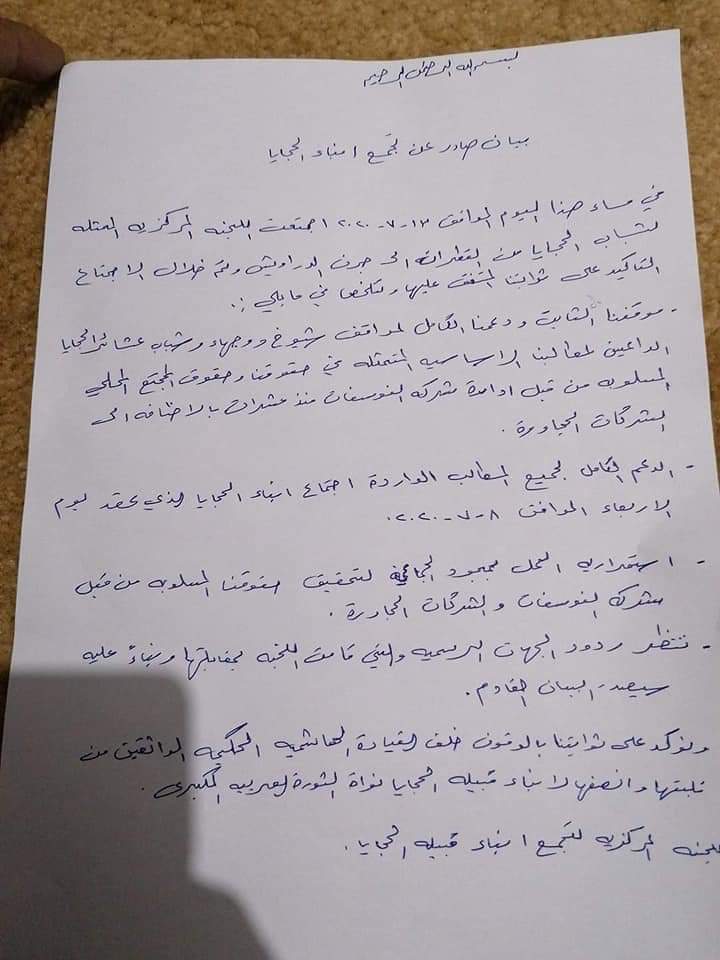 بسم الله الرحمن الرحيم
بيان صادر عن تجمع ابناء الحجايا
في مساء هذا اليوم الموافق ١٢-٧-٢٠٢٠ اجتمعت اللجنه المركزيه الممثله
لشباب الحجايا من القطرانه الى جرف الدراويش وتم خلال الاجتماع
التاكيد على ثوابتنا المتفق عليها وتلخصا في ما يلي :.
- موقفنا الثابت ودعمنا الكامل لمواقف شيوخ ووجهاء وشباب عشائر الحجايا
الداعين لمطالبنا الاساسيه المتمثله في حقوقنا وحقوق المجتمع المحلي
المسلوبه من قبل ادارة شركه الفوسفات منذ عشرات بالاضافه الى
الشركات المجاورة .
- الدعم الكامل لجميع المطالب الواردة اجتماع ابناء الحجايا الذي عقد يوم
الاربعاء الموافق ٨-٧-٢٠٢٠.
- استمراريه العمل بمجهود لتحقيق حقوقنا المسلوبه من قبل
شركه الفوسفات والشركات المجاورة .
- ننتظر ردود الجهات الرسميه والتي قامت اللجنه بمقابلتها وبناءً عليه
سيصدر البيان القادم .
ونؤكد على ثوابتنا بالوقوف خلف القيادة الهاشميه الحكيمه الواثقين من
وانصفها لابناء قبيله الحجايا نواة الثورة العربيه الكبرى .
اللجنه المركزيه لتجمع ابناء قبيله الحجايا .